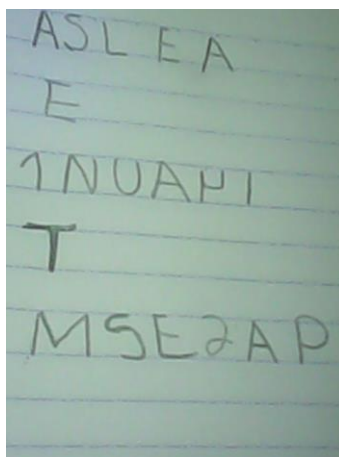 ASLEA
E
1NUAHI
T
MSE2AP